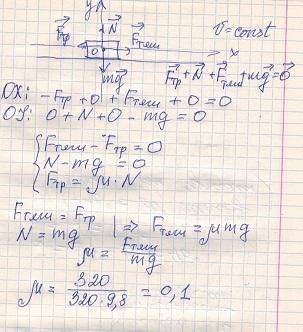 y N
Fтр Fтяги υ=const
0 x
mg Fтр+N+Fтяги+mg=0
OX: -Fтр+0+Fтяги+0=0
OY: 0+N+0-mg=0
Fтяги-Fтр=0
N-mg=0
Fтр=μ·N
Fтяги=Fтр
N=mg |⇒ Fтяги=μmg
μ=Fтяги/mg
μ=320/320·9,8=0,1